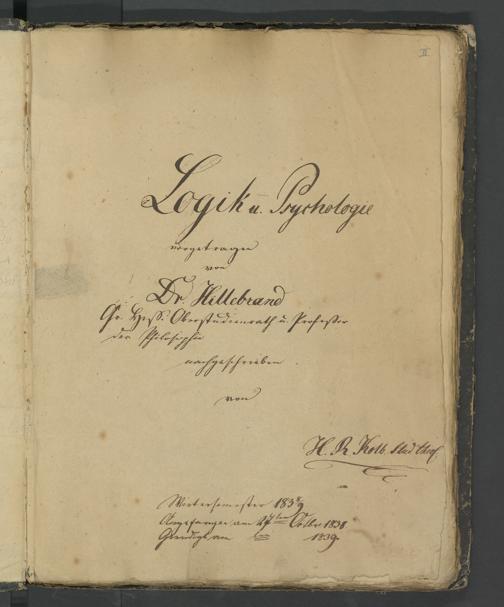 II
Logik u. Psychologie
vorgetragen
von
Dr. Hillebrand
Gr. Hess. Oberstudienrath u. Professor
der Philosophie
nachgeschrieben
von
H. R. Kolb. stud theol.
Wintersemester 1838/9
Angefangen am 27ten Octbr. 1838
Geendigt am 1839.